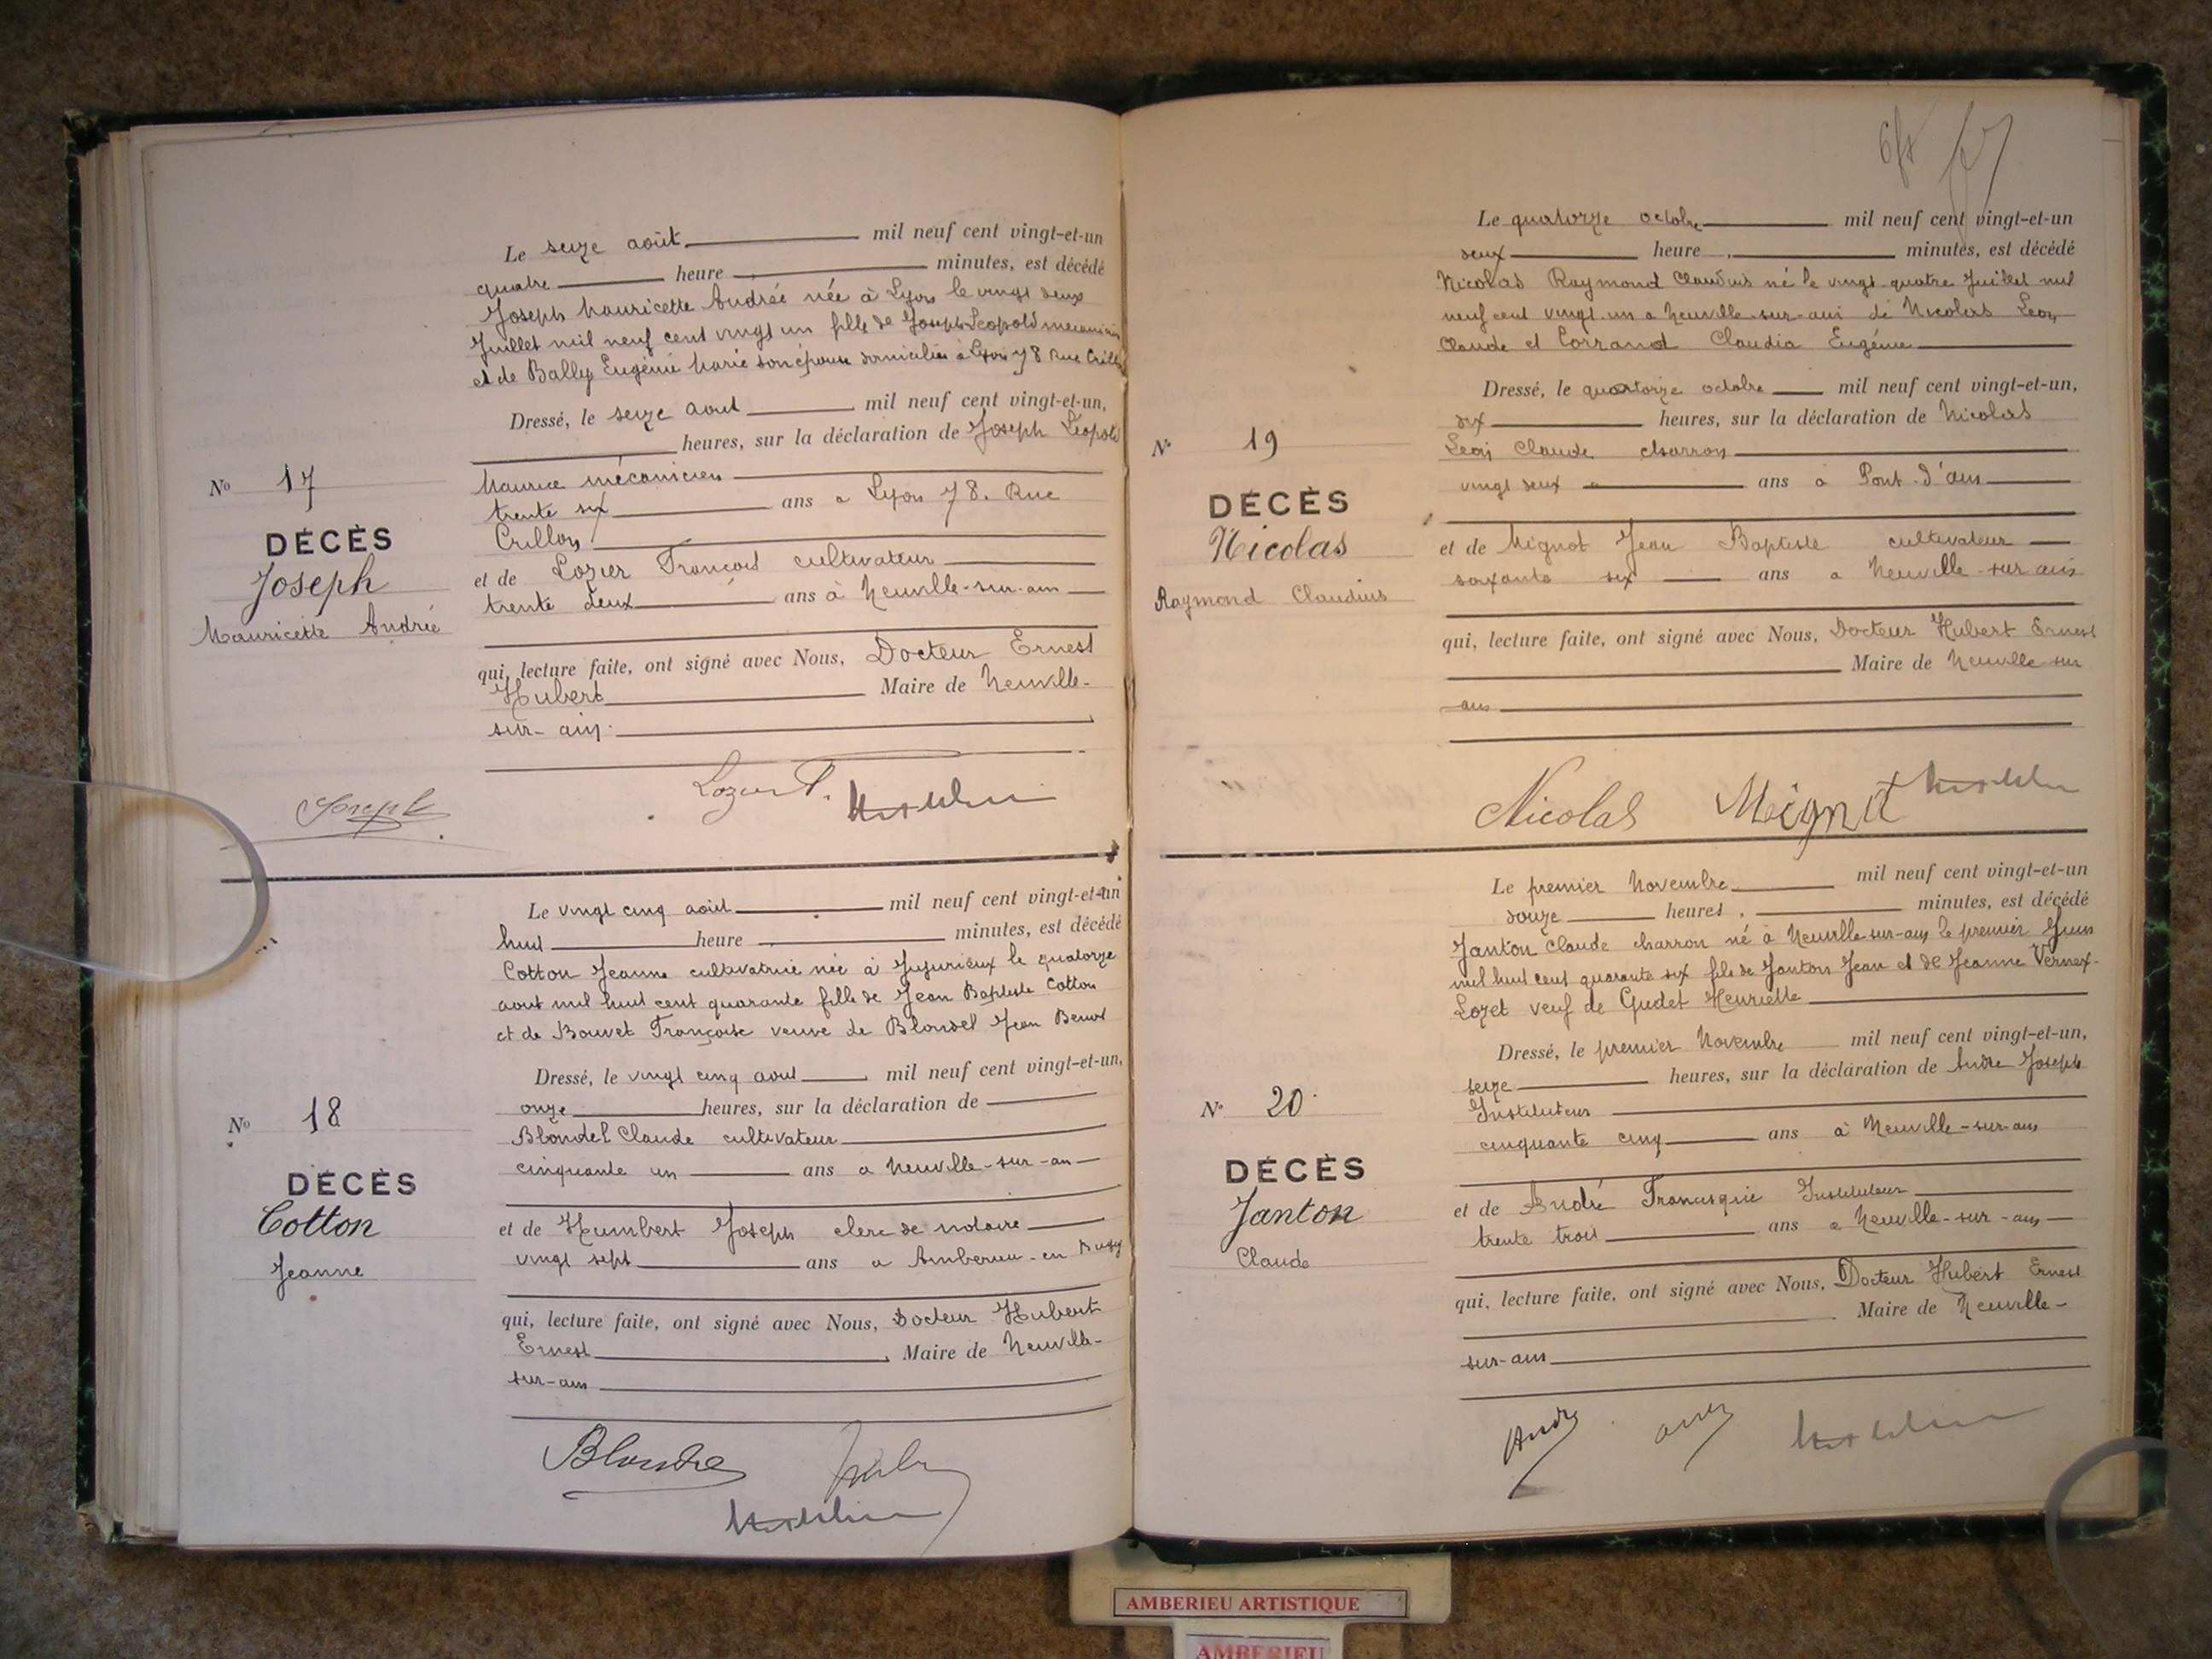 Le seize août mil neuf cent vingt-et-un
quatre heure minutes, est décédé
Joseph Mauricette Andrée née à Lyon le vingt deux
Juillet mil neuf cent vingt un fille de Joseph Leopold mecanicien
et de Bally Eugénie Marie son épouse domiciliés à Lyon 78 Rue Crillon
Dressé, le seize aout mil neuf cent vingt-et-un,
heures, sur la déclaration de Joseph Léopold
No 17
Maurice mécanicien
trente six ans a Lyon 78. Rue
DÉCÈS
Crillon
Joseph
et de Lozier François cultivateur
trente deux ans à Neuville-sur-ain
Mauricette Andrée
qui, lecture faite, ont signé avec Nous, Docteur Ernest
Hubert Maire de Neuville-
sur-ain.
Joseph Lozier F.
Le vingt cinq août mil neuf cent vingt-et-un
huit heure minutes, est décédé
Cotton Jeanne cultivatrice née à Jujurieux le quatorze
aout mil huit cent quarante fille de Jean Baptiste Cotton
et de Bouvet Françoise veuve de Blondel Jean Benoit
Dressé, le vingt cinq aout mil neuf cent vingt-et-un,
onze heures, sur la déclaration de
No 18
Blondel Claude cultivateur
cinquante un ans a Neuville-sur-ain
DÉCÈS
Cotton
et de Humbert Joseph clerc de notaire
vingt sept ans a Amberieu-en Bugey
Jeanne
qui, lecture faite, ont signé avec Nous, Docteur Hubert
Ernest Maire de Neuville-
sur-ain
Le quatorze octobre mil neuf cent vingt-et-un
deux heure minutes, est décédé
Nicolas Raymond Claudius né le vingt quatre Juillet mil
neuf cent vingt-un a Neuville-sur-ain de Nicolas Leon
Claude et Corrand Claudia Eugénie
Dressé, le quatorze octobre mil neuf cent vingt-et-un,
dix heures, sur la déclaration de Nicolas
No 19
Leon Claude charron
vingt deux ans a Pont-d'ain
DÉCÈS
Nicolas
et de Mignot Jean Baptiste cultivateur
soixante six ans a Neuville-sur ain
Raymond Claudius
qui, lecture faite, ont signé avec Nous, Docteur Hubert Ernest
Maire de Neuville-sur
ain
Nicolas Mignot
Le premier Novembre mil neuf cent vingt-et-un
douze heures, minutes, est décédé
Janton Claude charron né à Neuville-sur-ain le premier Juin
mil huit cent quarante six fils de Janton Jean et de Jeanne Vernex-
Lozet veuf de Gudet Henriette
Dressé, le premier Novembre mil neuf cent vingt-et-un,
seize heures, sur la déclaration de Andre Joseph
No 20
Instituteur
cinquante cinq ans à Neuville-sur-ain
DÉCÈS
Janton
et de André Francisque Instituteur
trente trois ans a Neuville-sur-ain
Claude
qui, lecture faite, ont signé avec Nous, Docteur Hubert Ernest
Maire de Neuville-
sur-ain
AMBERIEU ARTISTIQUE
AMBERIEU